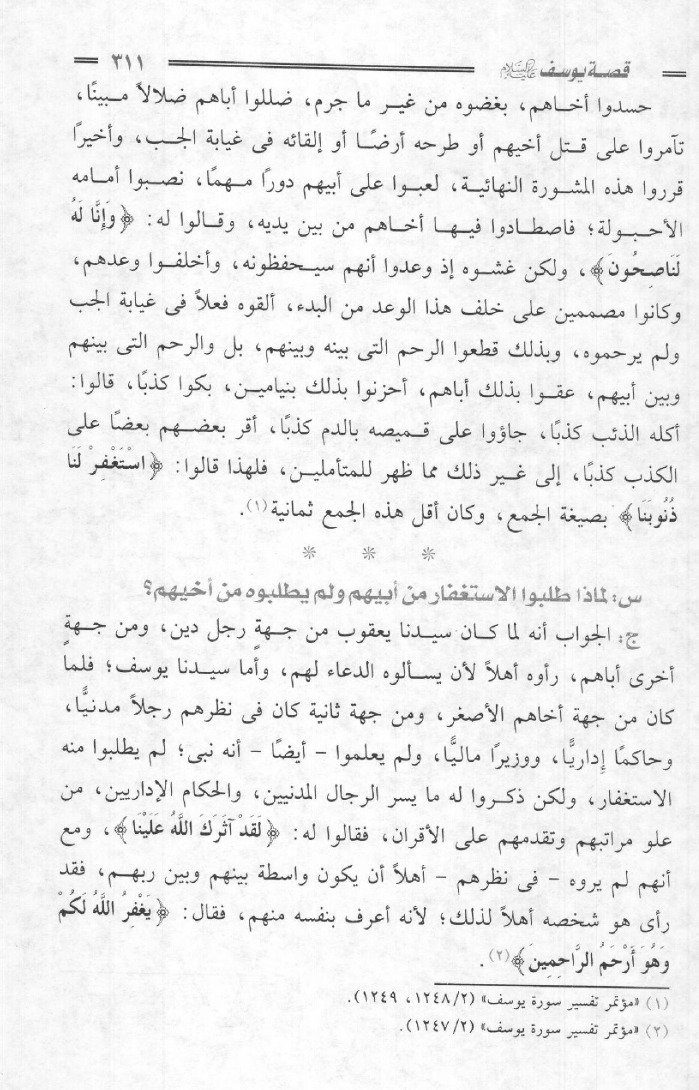 قصة يوسف عليه السلام ٣١١
حسدوا أخاهم، بغضوه من غير ما جرم، ضللوا أباهم ضلالاً مبينًا،
تآمروا على قتل أخيهم أو طرحه أرضًا أو إلقائه فى غيابة الجب، وأخيرًا
قرروا هذه المشورة النهائية، لعبوا على أبيهم دورًا مهمًا، نصبوا أمامه
الأحبولة؛ فاصطادوا فيها أخاهم من بين يديه، وقالوا له: ﴿وَإِنَّا لَهُ
لَنَاصِحُونَ﴾، ولكن غشوه إذ وعدوا أنهم سيحفظونه، وأخلفوا وعدهم،
وكانوا مصممين على خلف هذا الوعد من البدء، ألقوه فعلاً فى غيابة الجب
ولم يرحموه، وبذلك قطعوا الرحم التى بينه وبينهم، بل والرحم التى بينهم
وبين أبيهم، عقوا بذلك أباهم، أحزنوا بذلك بنيامين، بكوا كذبًا، قالوا:
أكله الذئب كذبًا، جاؤوا على قميصه بالدم كذبًا، أقر بعضهم بعضًا على
الكذب كذبًا، إلى غير ذلك مما ظهر للمتأملين، فلهذا قالوا: ﴿اسْتَغْفِرْ لَنَا
ذُنُوبَنَا﴾ بصيغة الجمع، وكان أقل هذه الجمع ثمانية(١).
* * *
س: لماذا طلبوا الاستغفار من أبيهم ولم يطلبوه من أخيهم؟
ج: الجواب أنه لما كان سيدنا يعقوب من جهةٍ رجل دين، ومن جهةٍ
أخرى أباهم، رأوه أهلاً لأن يسألوه الدعاء لهم، وأما سيدنا يوسف؛ فلما
كان من جهة أخاهم الأصغر، ومن جهة ثانية كان فى نظرهم رجلاً مدنيًّا،
وحاكمًا إداريًّا، ووزيرًا ماليًّا، ولم يعلموا - أيضًا - أنه نبى؛ لم يطلبوا منه
الاستغفار، ولكن ذكروا له ما يسر الرجال المدنيين، والحكام الإداريين، من
علو مراتبهم وتقدمهم على الأقران، فقالوا له: ﴿لَقَدْ آثَرَكَ اللَّهُ عَلَيْنَا﴾، ومع
أنهم لم يروه - فى نظرهم - أهلاً أن يكون واسطة بينهم وبين ربهم، فقد
رأى هو شخصه أهلاً لذلك؛ لأنه أعرف بنفسه منهم، فقال: ﴿يَغْفِرُ اللَّهُ لَكُمْ
وَهُوَ أَرْحَمُ الرَّاحِمِينَ﴾(٢).
(١) «مؤتمر تفسير سورة يوسف» (١٢٤٨/٢، ١٢٤٩).
(٢) «مؤتمر تفسير سورة يوسف» (١٢٤٧/٢).